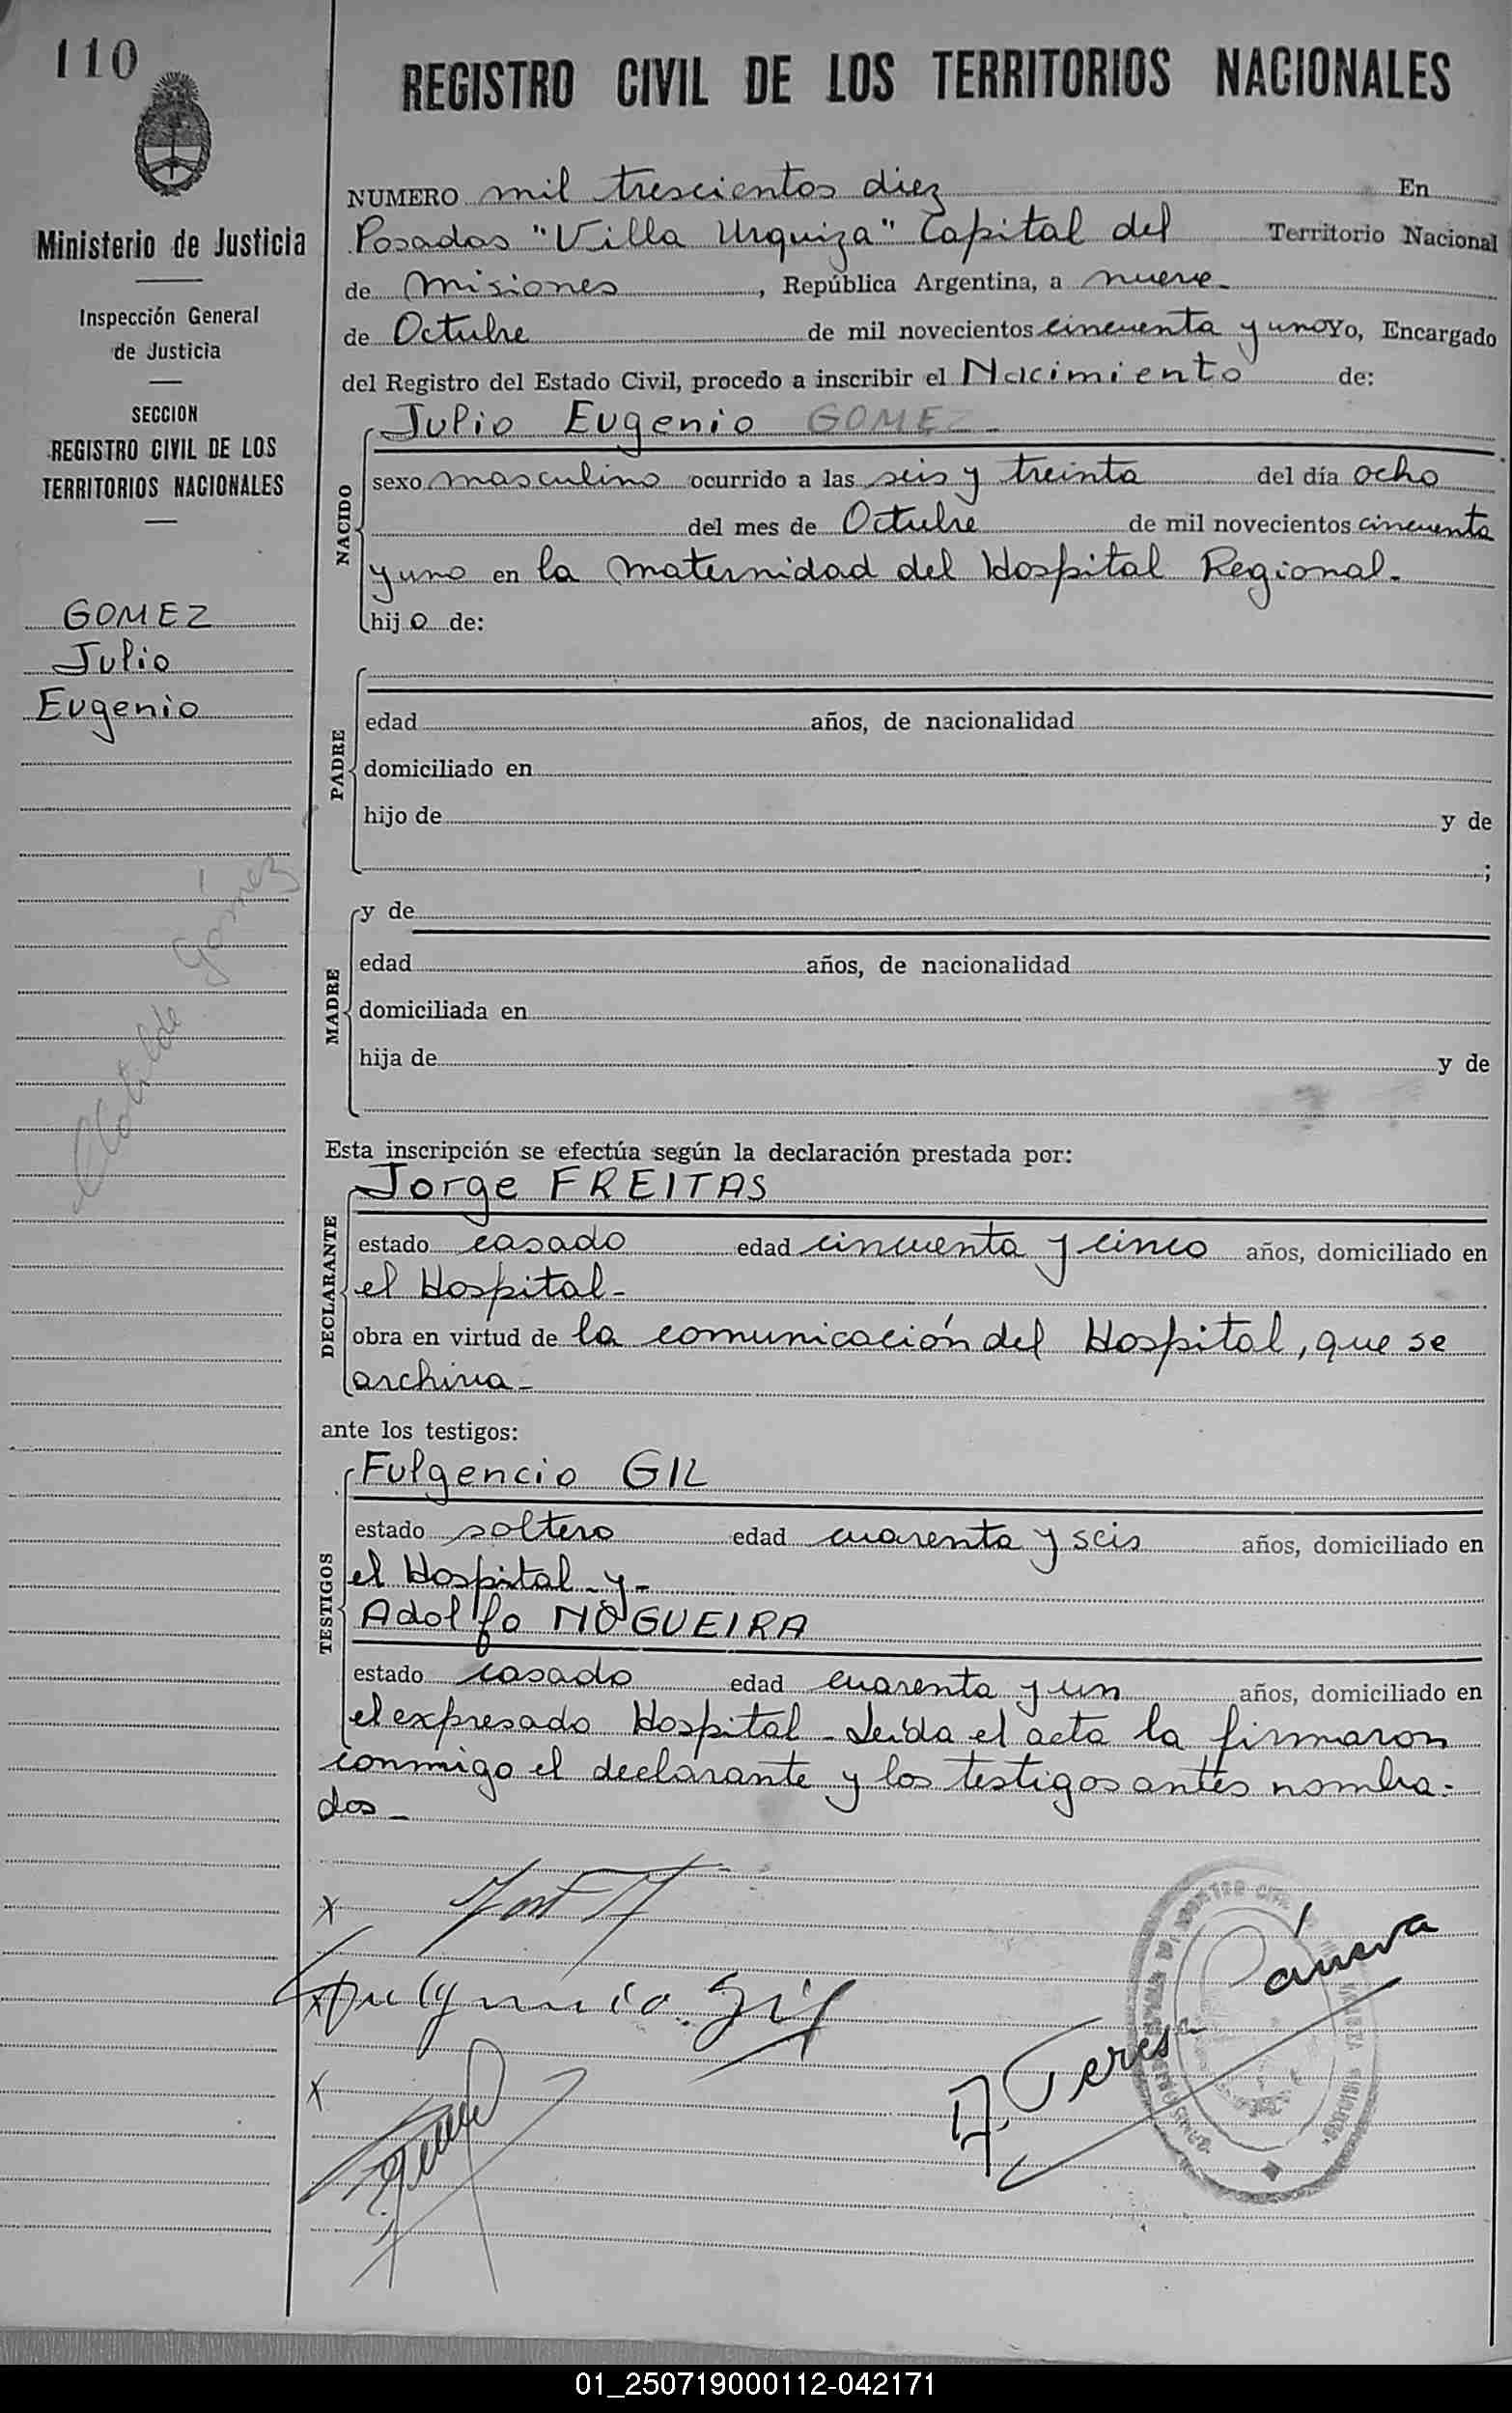 110
REGISTRO CIVIL DE LOS TERRITORIOS NACIONALES
Ministerio de Justicia
Inspección General
de Justicia
SECCION
REGISTRO CIVIL DE LOS
TERRITORIOS NACIONALES
GOMEZ
Julio
Eugenio
Clotilde Gómez
NUMERO mil trescientos diez En
Posadas "Villa Urquiza" Capital del Territorio Nacional
de Misiones, República Argentina, a nueve-
de Octubre de mil novecientos cincuenta y uno Yo, Encargado
del Registro del Estado Civil, procedo a inscribir el Nacimiento de:
NACIDO
Julio Eugenio GOMEZ-
sexo masculino ocurrido a las seis y treinta del día ocho
del mes de Octubre de mil novecientos cincuenta
y uno en la Maternidad del Hospital Regional-
hijo de:
PADRE
edad años, de nacionalidad
domiciliado en
hijo de y de
;
MADRE
y de
edad años, de nacionalidad
domiciliada en
hija de y de
Esta inscripción se efectúa según la declaración prestada por:
DECLARANTE
Jorge FREITAS
estado casado edad cincuenta y cinco años, domiciliado en
el Hospital-
obra en virtud de la comunicación del Hospital, que se
archiva-
ante los testigos:
TESTIGOS
Fulgencio GIL
estado soltero edad cuarenta y seis años, domiciliado en
el Hospital-y-
Adolfo NOGUEIRA
estado casado edad cuarenta y un años, domiciliado en
el expresado Hospital-Leída el acta la firmaron
conmigo el declarante y los testigos antes nombra-
dos-
x
x Fulgencio Gil
x
A. Teresa Cánova
01_250719000112-042171